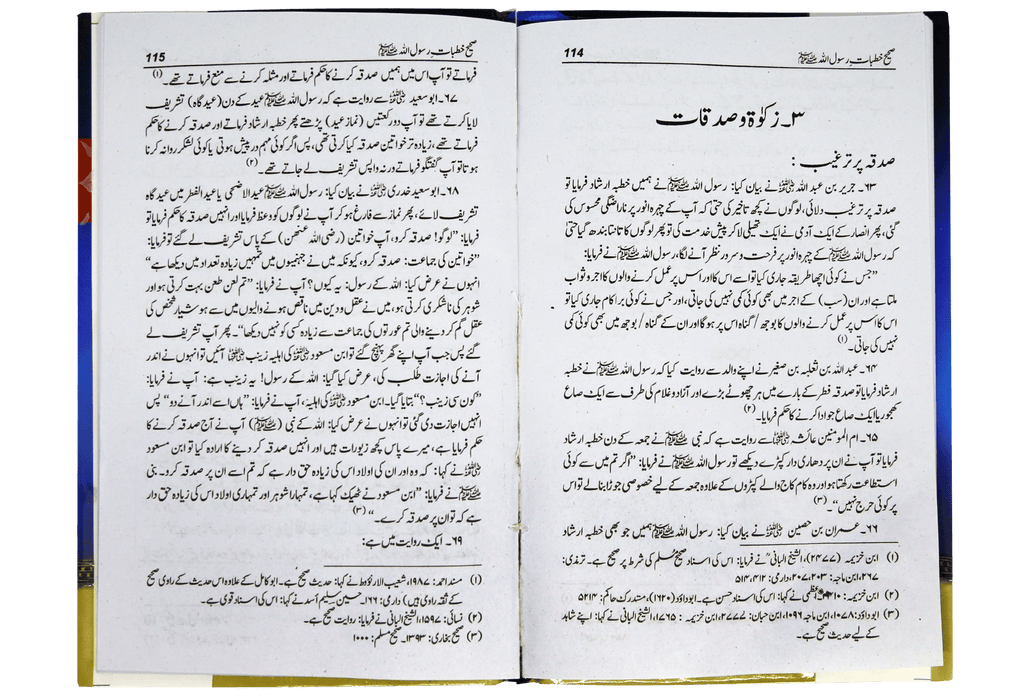 صحیح خطبات رسول اللہ ﷺ 114
۳۔ زکوٰۃ و صدقات
صدقہ پر ترغیب :
۶۳۔ جریر بن عبد اللہ ؓ نے بیان کیا: رسول اللہ ﷺ نے ہمیں خطبہ ارشاد فرمایا تو
صدقہ پر ترغیب دلائی، لوگوں نے کچھ تاخیر کی حتیٰ کہ آپ کے چہرہ انور پر ناراضگی محسوس کی
گئی، پھر انصار کے ایک آدمی نے ایک تھیلی لا کر پیش خدمت کی تو پھر لوگوں کا تانتا بندھ گیا حتیٰ
کہ رسول اللہ ﷺ کے چہرہ انور پر فرحت و سرور نظر آنے لگا، رسول اللہ ﷺ نے فرمایا:
”جس نے کوئی اچھا طریقہ جاری کیا تو اسے اس کا اور اس پر عمل کرنے والوں کا اجر و ثواب
ملتا ہے اور ان (سب) کے اجر میں بھی کوئی کمی نہیں کی جاتی، اور جس نے کوئی برا کام جاری کیا تو
اس کا اس پر عمل کرنے والوں کا بوجھ/ گناہ اس پر ہو گا اور ان کے گناہ / بوجھ میں بھی کوئی کمی
نہیں کی جاتی۔ (۱)
۶۴۔ عبد اللہ بن ثعلبہ بن صغیر نے اپنے والد سے روایت کیا کہ رسول اللہ ﷺ نے خطبہ
ارشاد فرمایا تو صدقہ فطر کے بارے میں ہر چھوٹے بڑے اور آزاد و غلام کی طرف سے ایک صاع
کھجور یا ایک صاع جو ادا کرنے کا حکم فرمایا۔ (۲)
۶۵۔ ام المومنین عائشہ ؓ سے روایت ہے کہ نبی ﷺ نے جمعہ کے دن خطبہ ارشاد
فرمایا تو آپ نے ان پر دھاری دار کپڑے دیکھے تو رسول اللہ ﷺ نے فرمایا: ”اگر تم میں سے کوئی
استطاعت رکھتا ہو اور وہ کام کاج والے کپڑوں کے علاوہ جمعہ کے لیے خصوصی جوڑا بنالے تو اس
پر کوئی حرج نہیں“۔ (۳)
۶۶۔ عمران بن حصین ؓ نے بیان کیا: رسول اللہ ﷺ ہمیں جو بھی خطبہ ارشاد
(۱) ابن خزیمہ (۲۴۷۷)، الشیخ البانی ؒ نے فرمایا: اس کی اسناد صحیح مسلم کی شرط پر صحیح ہے۔ ترمذی:
۲۶۷، ابن ماجہ: ۲۰۳، ۲۰۷، دارمی: ۴۱۲، ۵۱۴
(۲) ابن خزیمہ: ۲۴۱۰ اعظمی نے کہا: اس کی اسناد حسن ہے۔ ابوداؤد (۱۶۲۰)، مستدرک حاکم: ۵۲۱۴
(۳) ابوداؤد: ۱۰۷۸، ابن ماجہ ۱۰۹۶، ابن حبان: ۲۷۷۷، ابن خزیمہ : ۱۷۶۵، الشیخ البانی نے کہا: اپنے شاہد
کے لیے حدیث صحیح ہے۔
صحیح خطبات رسول اللہ ﷺ 115
فرماتے تو آپ اس میں ہمیں صدقہ کرنے کا حکم فرماتے اور مثلہ کرنے سے منع فرماتے تھے۔ (۱)
۶۷۔ ابو سعید ؓ سے روایت ہے کہ رسول اللہ ﷺ عید کے دن (عید گاہ) تشریف
لایا کرتے تھے تو آپ دو رکعتیں (نماز عید) پڑھتے پھر خطبہ ارشاد فرماتے اور صدقہ کرنے کا حکم
فرماتے تھے، زیادہ تر خواتین صدقہ کیا کرتی تھی، پس اگر کوئی مہم در پیش ہوتی یا کوئی لشکر روانہ کرنا
ہوتا تو آپ گفتگو فرماتے ورنہ واپس تشریف لے جاتے تھے۔ (۲)
۶۸۔ ابو سعید خدری ؓ نے بیان کیا: رسول اللہ ﷺ عید الاضحیٰ یا عید الفطر میں عید گاہ
تشریف لائے، پھر نماز سے فارغ ہو کر آپ نے لوگوں کو وعظ فرمایا اور انہیں صدقہ کا حکم فرمایا تو
فرمایا: ”لوگو! صدقہ کرو، آپ خواتین (رضی اللہ عنھن) کے پاس تشریف لے گئے تو فرمایا:
”خواتین کی جماعت: صدقہ کرو، کیونکہ میں نے جہنمیوں میں تمہیں زیادہ تعداد میں دیکھا ہے“
انہوں نے عرض کیا: اللہ کے رسول: یہ کیوں؟ آپ نے فرمایا: ”تم لعن طعن بہت کرتی ہو اور
شوہر کی ناشکری کرتی ہو، میں نے عقل و دین میں ناقص ہونے والیوں میں سے ہوشیار شخص کی
عقل گم کر دینے والی تم عورتوں کی جماعت سے زیادہ کسی کو نہیں دیکھا“۔ پھر آپ تشریف لے
گئے پس جب آپ اپنے گھر پہنچ گئے تو ابن مسعود ؓ کی اہلیہ زینب ؓ آئیں تو انہوں نے اندر
آنے کی اجازت طلب کی، عرض کیا گیا: اللہ کے رسول! یہ زینب ہے: آپ نے فرمایا:
”کون سی زینب؟“ بتایا گیا۔ ابن مسعود ؓ کی اہلیہ، آپ نے فرمایا: ”ہاں اسے اندر آنے دو“ پس
انہیں اجازت دی گئی تو انہوں نے عرض کیا: اللہ کے نبی (ﷺ) آپ نے آج صدقہ کرنے کا
حکم فرمایا ہے، میرے پاس کچھ زیورات ہیں اور انہیں صدقہ کر دینے کا ارادہ کیا تو ابن مسعود
ؓ نے کہا: کہ وہ اور ان کی اولاد اس کی زیادہ حق دار ہے کہ تم اسے ان پر صدقہ کرو۔ نبی
ﷺ نے فرمایا: ”ابن مسعود نے ٹھیک کہا ہے، تمہارا شوہر اور تمہاری اولاد اس کی زیادہ حق دار
ہے کہ تو ان پر صدقہ کرے۔“ (۳)
۶۹۔ ایک روایت میں ہے:
(۱) مسند احمد: ۱۹۸۷، شعیب الارنؤوط نے کہا: حدیث صحیح ہے۔ ابو کامل کے علاوہ اس حدیث کے راوی صحیح
کے ثقہ راوی ہیں) دارمی: ۱۶۶۔ حسین سلیم أسد نے کہا: اس کی اسناد قوی ہے۔
(۲) نسائی: ۱۵۹۷، الشیخ البانی نے فرمایا: روایت صحیح ہے۔
(۳) صحیح بخاری: ۱۳۹۳۔ صحیح مسلم: ۱۰۰۰